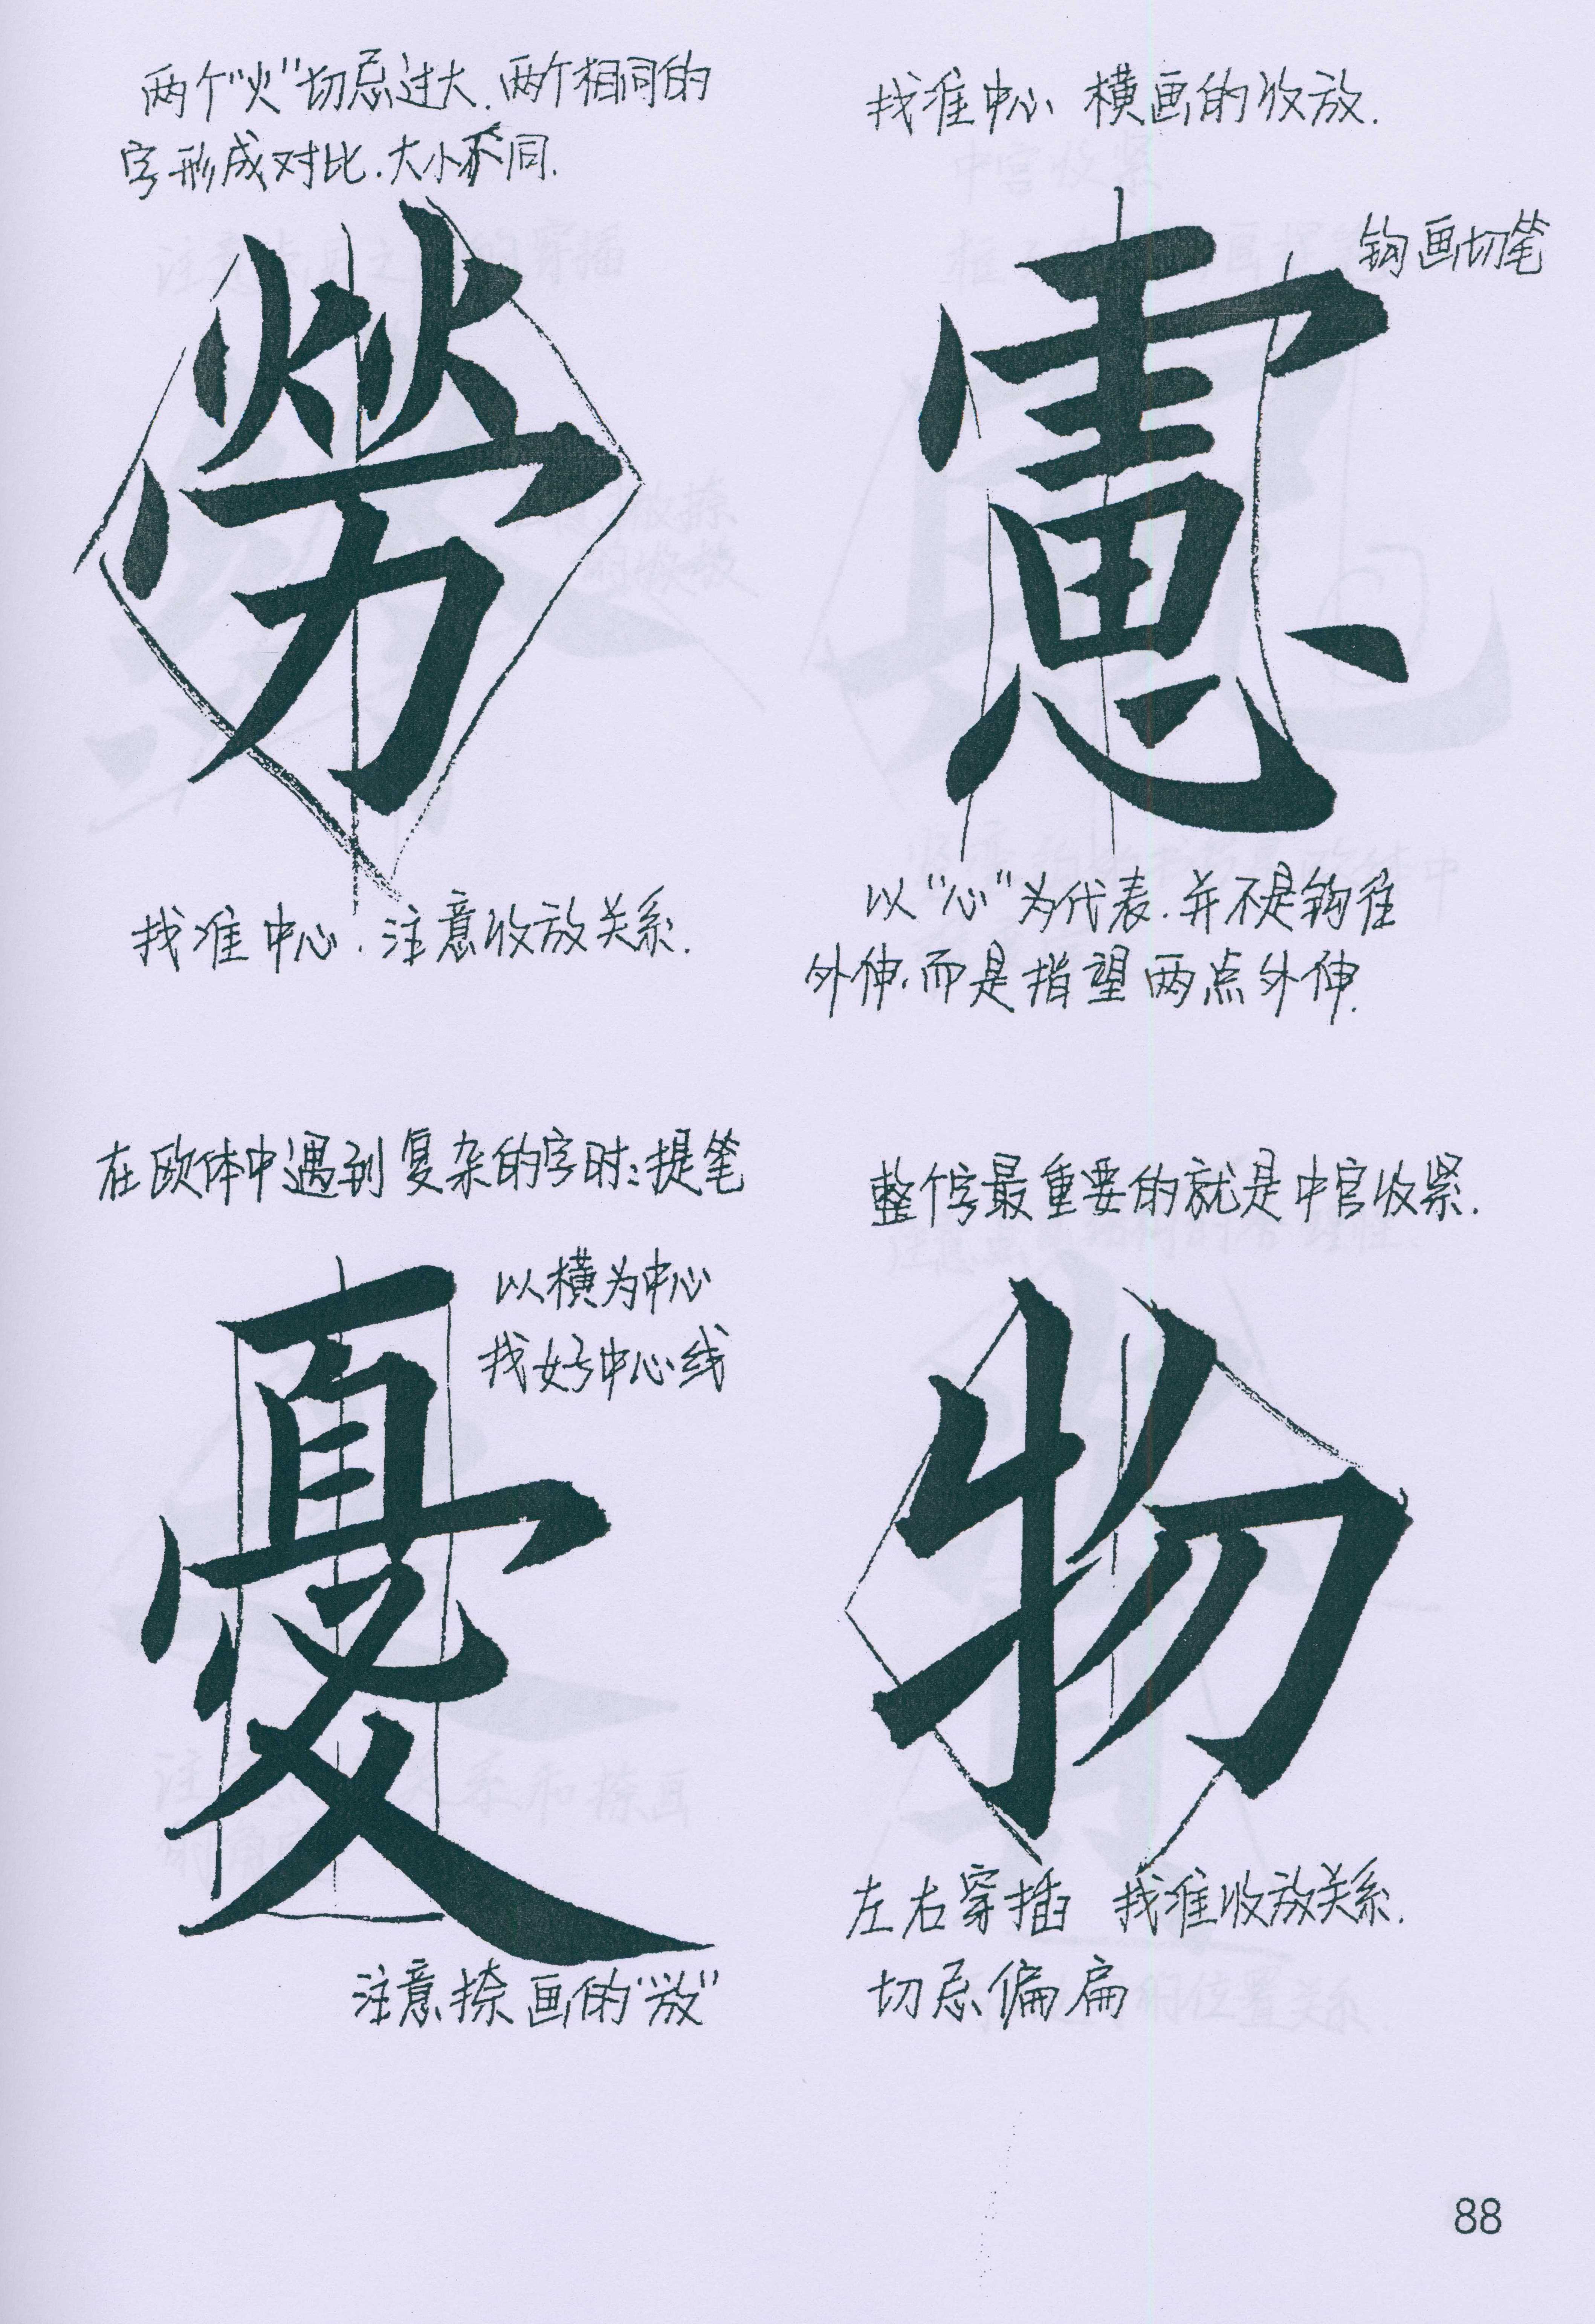 两个“火”切忌过大.两个相同的
字形成对比.大小不同.
勞
找准中心.注意收放关系.
找准中心 横画的收放.
钩画切笔
憲
以“心”为代表.并不是钩往
外伸.而是指望两点外伸.
在欧体中遇到复杂的字时:提笔
以横为中心
找好中心线
憂
注意捺画的“放”
整个字最重要的就是中宫收紧.
物
左右穿插 找准收放关系.
切忌偏扁
88